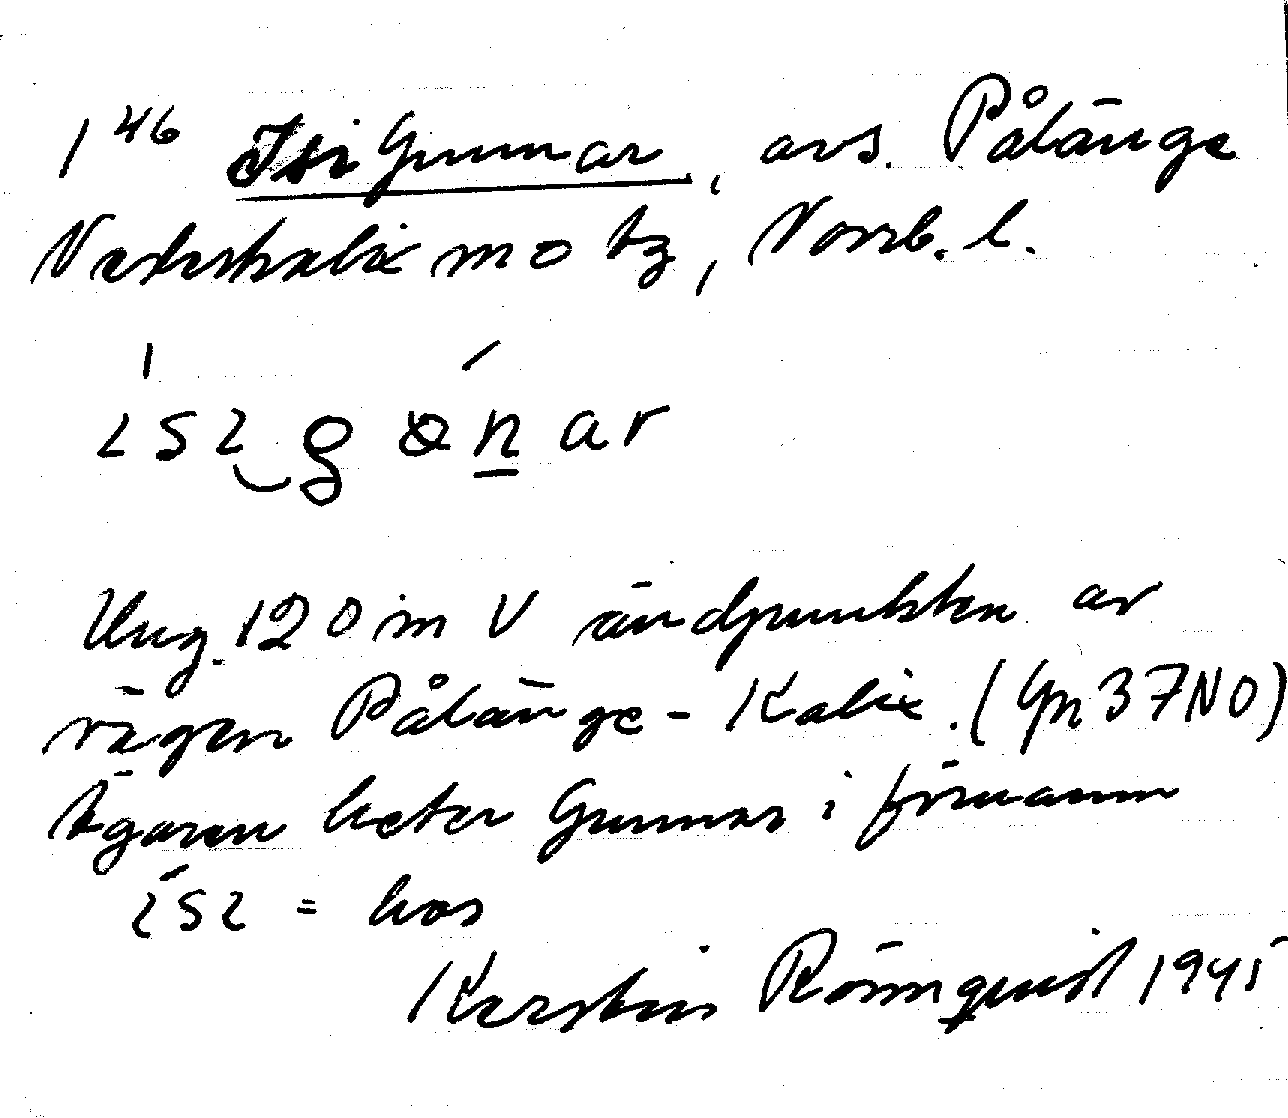 1 46 IsiGunnar, avs. Pålänge
Nederkalix m o tg, Norrb. l.
ɩsɩ g ɵn ar
Ung. 120 m V ändpunkten av
vägen Pålänge - Kalix. (Gn 37NO)
Ägaren heter Gunnar i förnamn
ɩsɩ = hos
Kerstin Rönnquist 1945